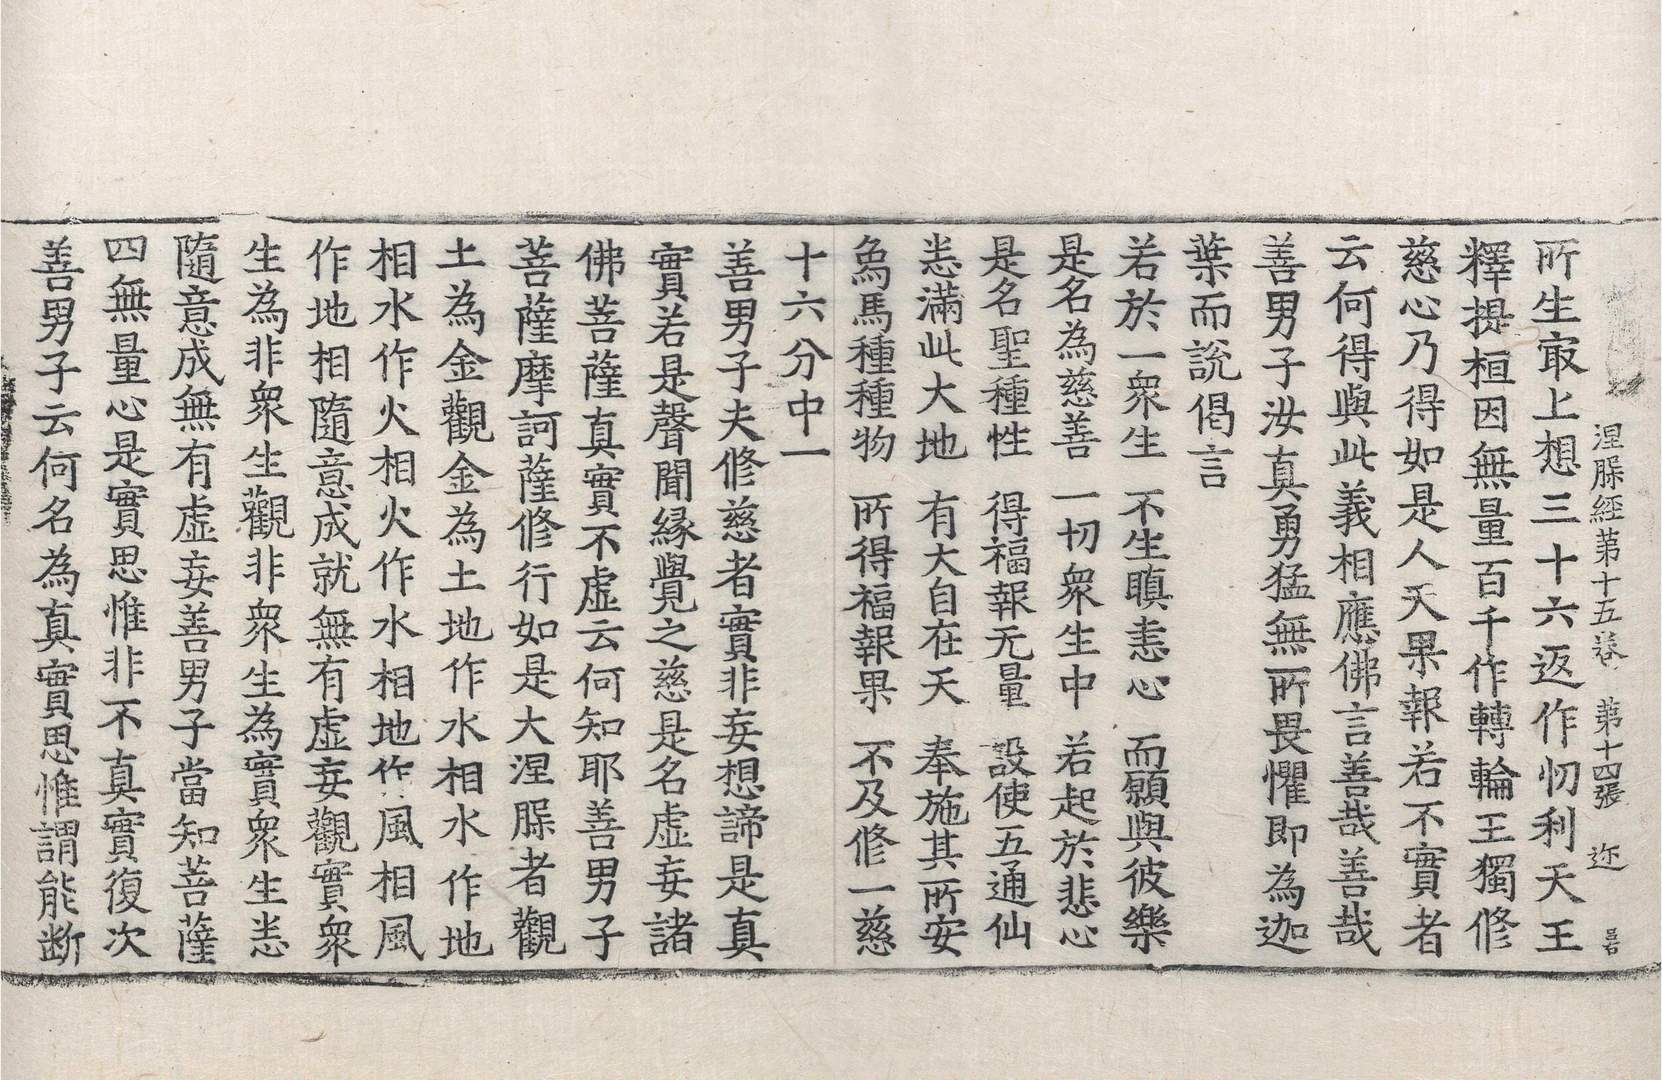 涅槃経苐十五巻 苐十四張 迩
所生㝡上想三十六返作忉利天王
釋提桓因無量百千作轉輪王獨修
慈心乃得如是人天果報若不實者
云何得與此義相應佛言善哉善哉
善男子汝真勇猛無所畏懼即為迦
葉而說偈言
若於一衆生 不生瞋恚心 而願與彼樂
是名為慈善 一切衆生中 若起於悲心
是名聖種性 得福報无量 設使五通仙
悉滿此大地 有大自在天 奉施其所安
象馬種種物 所得福報果 不及修一慈
十六分中一
善男子夫修慈者實非妄想諦是真
實若是聲聞緣覺之慈是名虛妄諸
佛菩薩真實不虛云何知耶善男子
菩薩摩訶薩修行如是大涅槃者觀
土為金觀金為土地作水相水作地
相水作火相火作水相地作風相風
作地相隨意成就無有虛妄觀實衆
生為非衆生觀非衆生為實衆生悉
隨意成無有虛妄善男子當知菩薩
四無量心是實思惟非不真實復次
善男子云何名為真實思惟謂能断